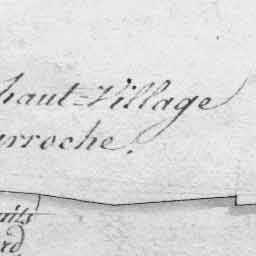 haut-Village
arroche.
uits
rd